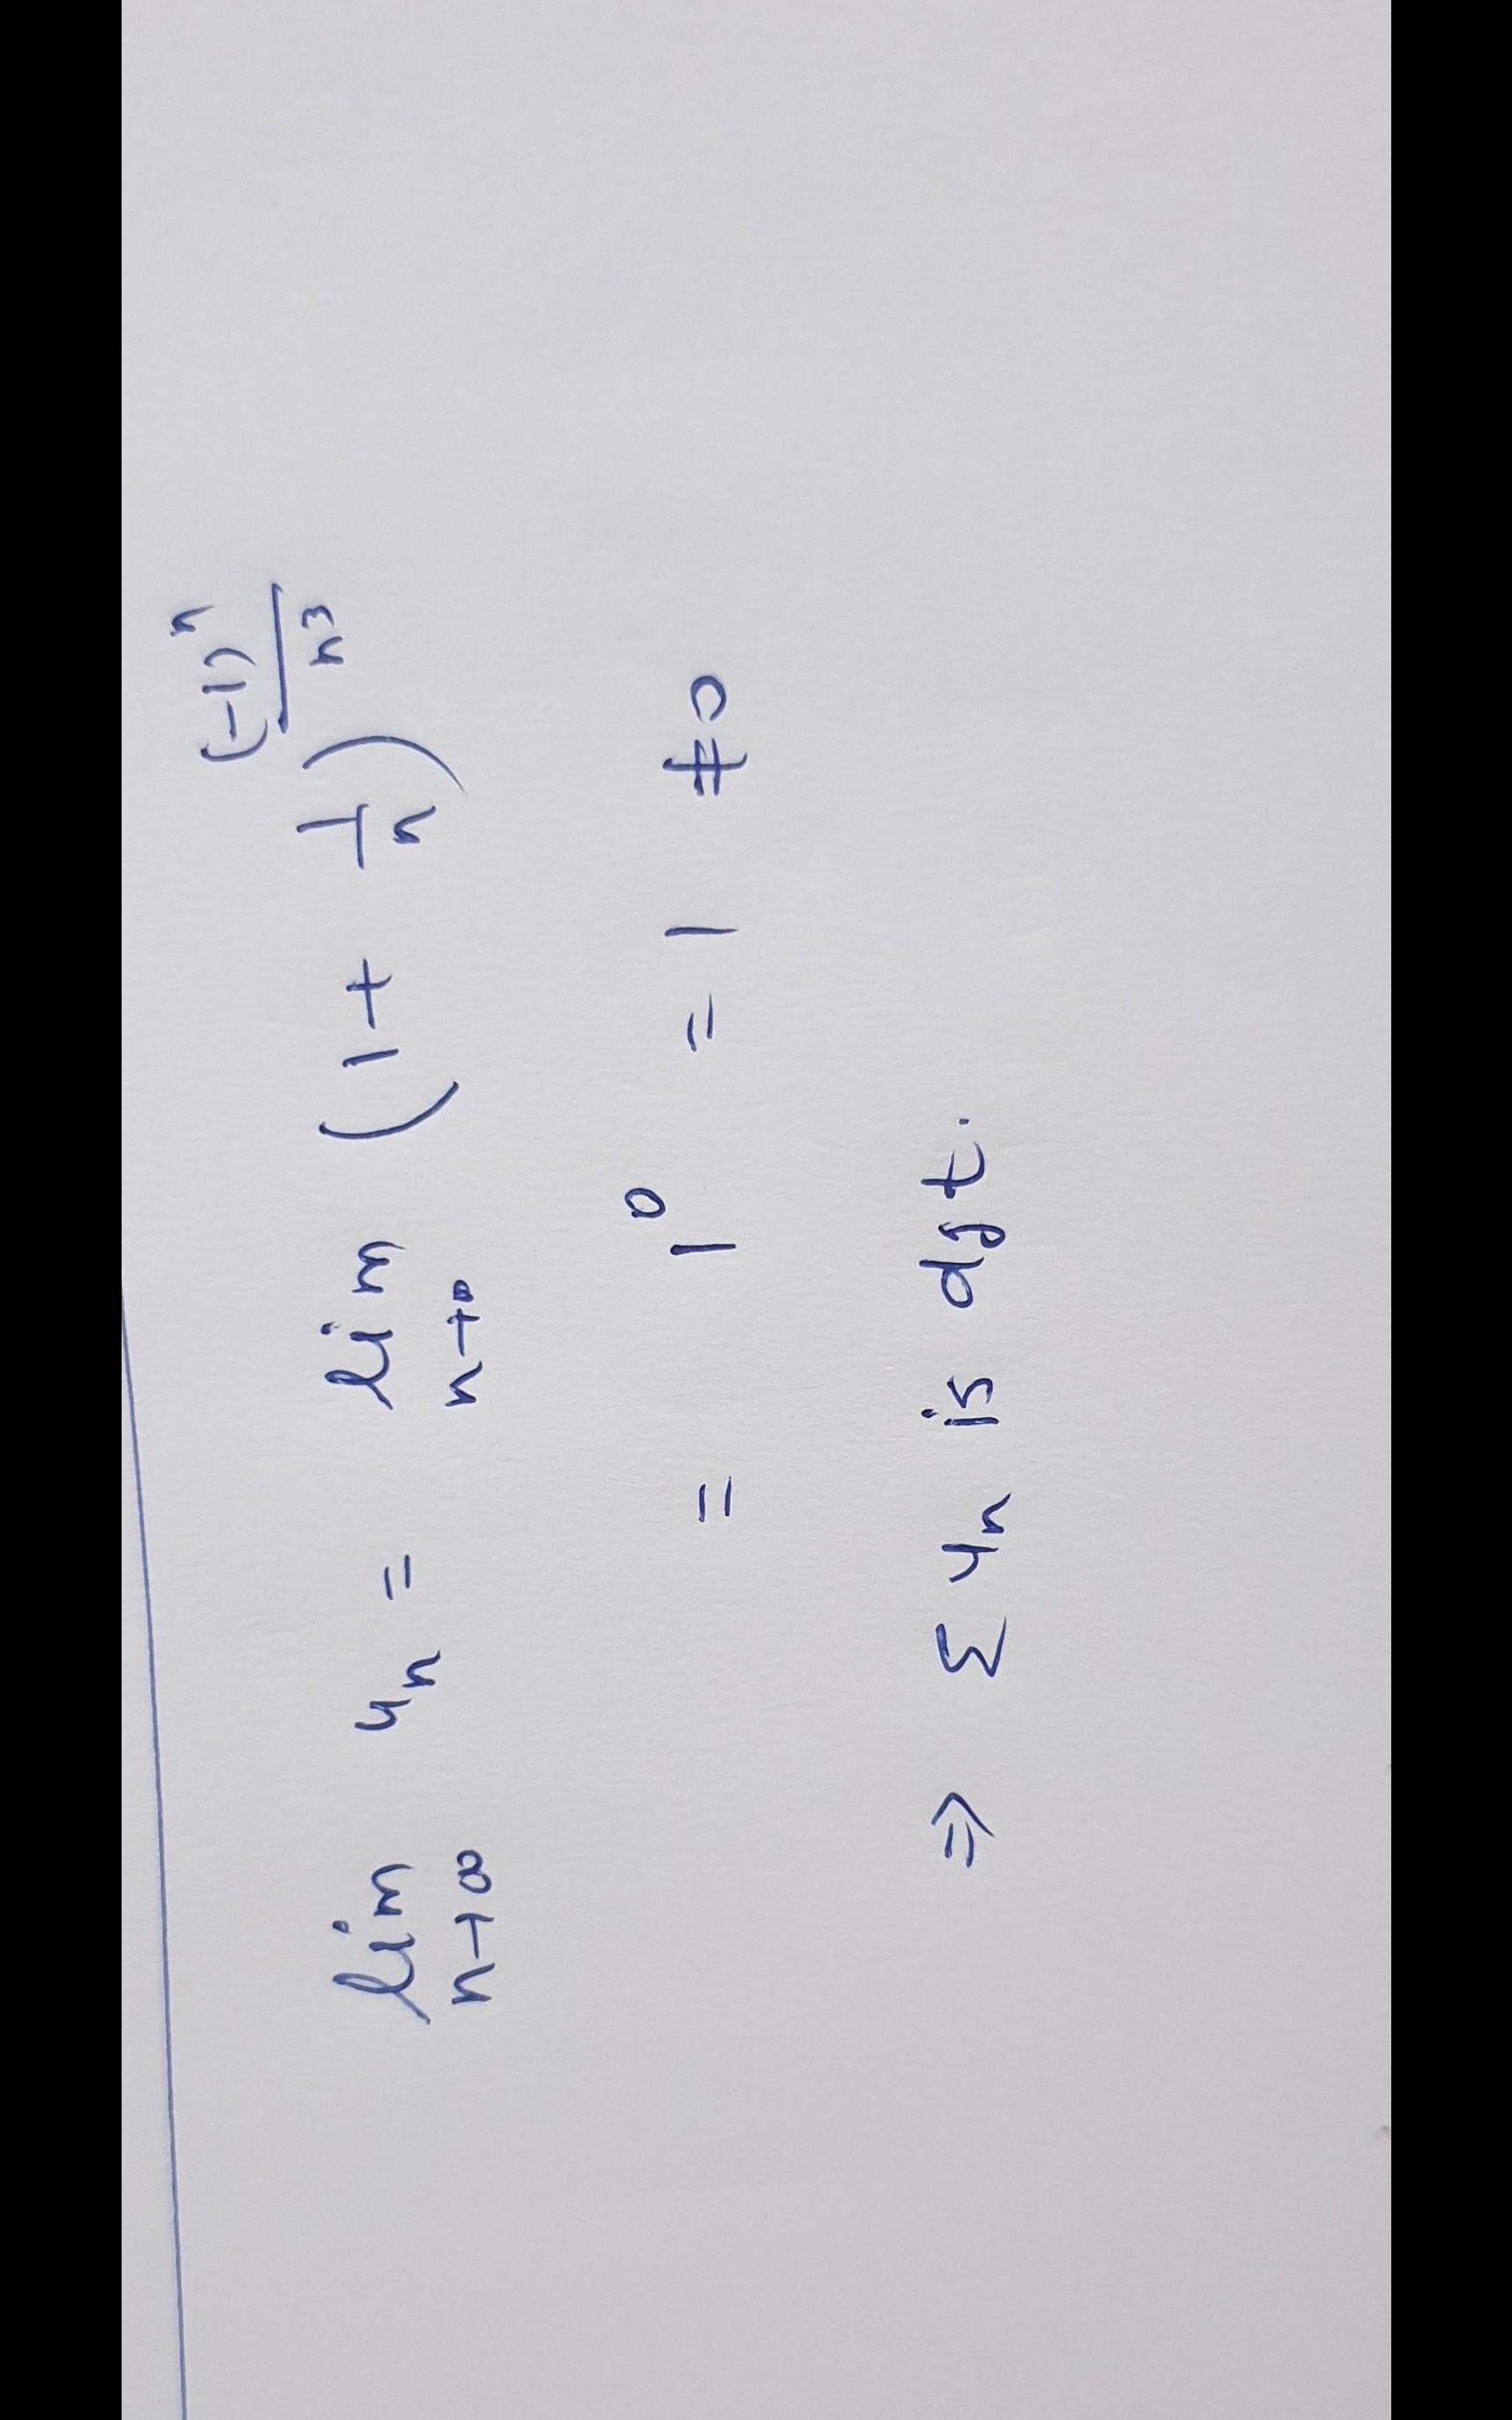 lim n→∞ uₙ = lim n→∞ (1 + 1/n)^((-1)ⁿ/n³)
= 1⁰ = 1 ≠ 0
⇒ Σ uₙ is dgt.